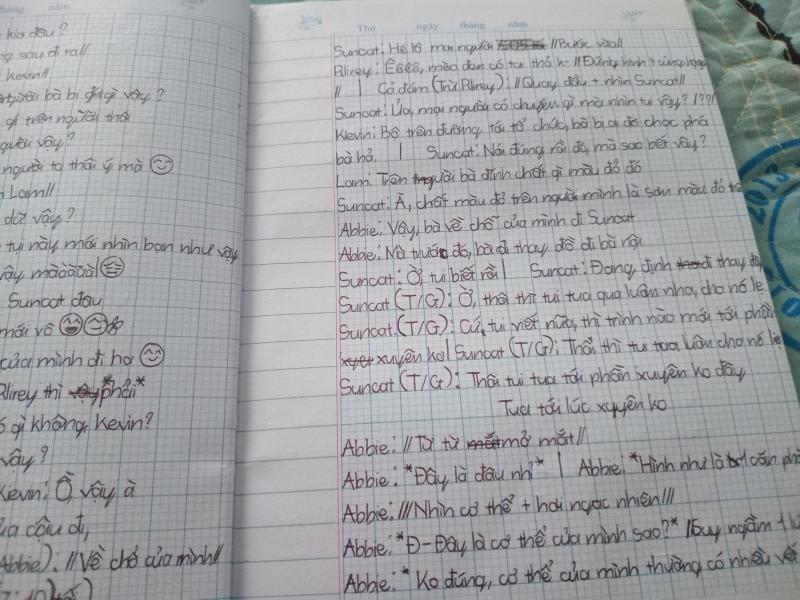 háng năm
kia đâu?
sau đi ra//
kevin//
người bà bị gì vậy?
gì trên người thế
người vậy?
người ta thôi ý mà
Lam//
dữ vậy?
tụi này mới nhìn bạn như vậy
vậy màààà!
Suncat đâu
mới vô
của mình đi ha
Rlirey thì *phải*
gì không, Kevin?
vậy?
Kevin: Ồ, vậy à
cậu đi,
Abbie): //Về chỗ của mình//
Thứ ngày tháng năm
Suncat: Hé lô mọi người //Bước vào//
Rlirey: Êêêê, mèo đen có tai thỏ k- //Đứng hình + cứng họng
// | Cả đám (Trừ Rlirey): //Quay đầu + nhìn Suncat//
Suncat: Ủa, mọi người có chuyện gì mà nhìn tui vậy? /???/
Kevin: Bộ trên đường tới tổ chức, bà bị ai đó chọc phá
bà hả. | Suncat: Nói đúng rồi đó, mà sao biết vậy?
Lam: Trên người bà dính chất gì màu đỏ đó
Suncat: À, chất màu đỏ trên người mình là sơn màu đỏ
Abbie: Vậy, bà về chỗ của mình đi Suncat
Abbie: Mà trước đó, bà đi thay đồ đi bà nội
Suncat: Ờ, tui biết rồi | Suncat: Đang định đi thay
Suncat (T/G): Ờ, thôi thì tui tua qua luôn nha, cho nó lẹ
Suncat (T/G): Cứ, tui viết nữa, thì trình nào mới tới phần
xuyên ko | Suncat (T/G): Thôi thì tui tua luôn cho nó lẹ
Suncat (T/G): Thôi tui tua tới phần xuyên ko đây
Tua tới lúc xuyên ko
Abbie: //Từ từ mở mắt//
Abbie: *Đây là đâu nhỉ* | Abbie: *Hình như là căn
Abbie: ///Nhìn cơ thể + hơi ngạc nhiên///
Abbie: *Đ-Đây là cơ thể của mình sao?* /Suy ngẫm +
Abbie: *Ko đúng, cơ thể của mình thường có nhiều vết